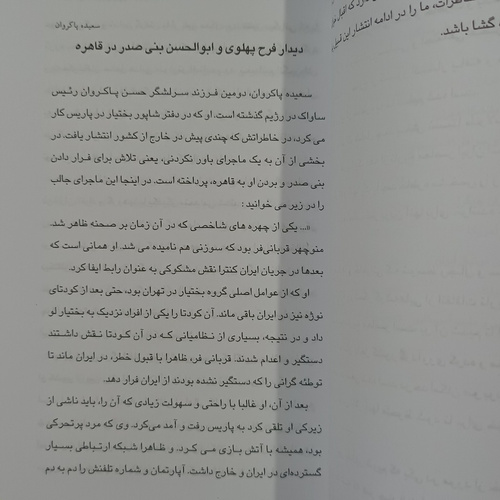 خاطرات، ما را در ادامه انتشار این
گشا باشد.
سعیده پاکروان
دیدار فرح پهلوی و ابوالحسن بنی صدر در قاهره
سعیده پاکروان، دومین فرزند سرلشگر حسن پاکروان رئیس
ساواک در رژیم گذشته است. او که در دفتر شاپور بختیار در پاریس کار
می کرد، در خاطراتش که چندی پیش در خارج از کشور انتشار یافت، در
بخشی از آن به یک ماجرای باور نکردنی، یعنی تلاش برای فرار دادن
بنی صدر و بردن او به قاهره، پرداخته است. در اینجا این ماجرای جالب
را در زیر می خوانید:
«... یکی از چهره های شاخصی که در آن زمان بر صحنه ظاهر شد.
منوچهر قربانی‌فر بود که سوزنی هم نامیده می شد. او همانی است که
بعدها در جریان ایران کنترا نقش مشکوکی به عنوان رابط ایفا کرد.
او که از عوامل اصلی گروه بختیار در تهران بود، حتی بعد از کودتای
نوژه نیز در ایران باقی ماند. آن کودتا را یکی از افراد نزدیک به بختیار لو
داد و در نتیجه، بسیاری از نظامیانی که در آن کودتا نقش داشتند
دستگیر و اعدام شدند. قربانی فر، ظاهرا با قبول خطر، در ایران ماند تا
توطئه گرانی را که دستگیر نشده بودند از ایران فرار دهد.
بعد از آن، او غالبا با راحتی و سهولت زیادی که آن را، باید ناشی از
زیرکی او تلقی کرد به پاریس رفت و آمد می‌کرد. وی که مرد پرتحرکی
بود، همیشه با آتش بازی می کرد. و ظاهرا شبکه ارتباطی بسیار
گسترده‌ای در ایران و خارج داشت. آپارتمان و شماره تلفنش را دم به دم